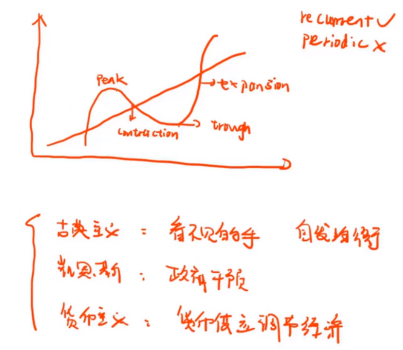 recurrent✓
periodic ×
peak
expansion
contraction
trough
古典主义：看不见的手 自发均衡
凯恩斯：政府干预
货币主义：货币供应调节经济